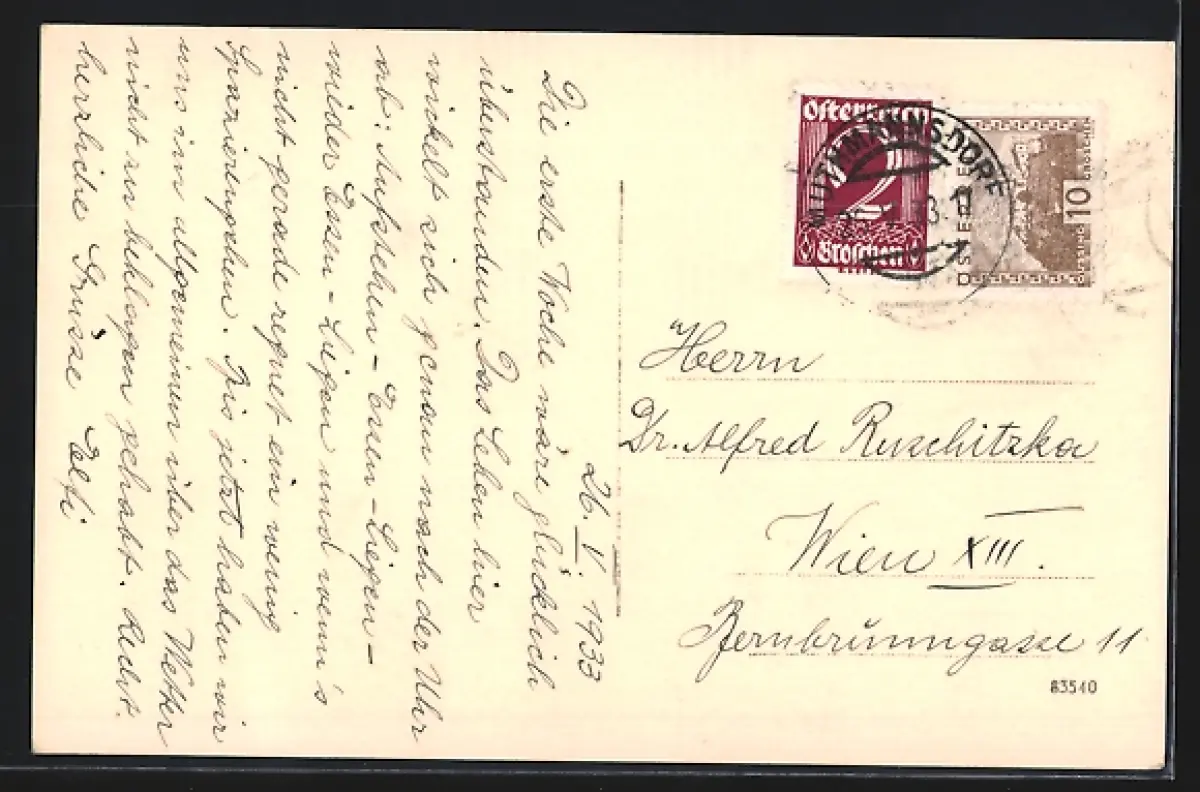 26. V. 1933
Die erste Woche wäre glücklich
überstanden. Das Leben hier
wickelt sich genau nach der Uhr
ab: Aufstehen – Essen – Liegen –
wieder Essen – Liegen und wenn's
nicht gerade regnet ein wenig
Spazierengehen. Bis jetzt haben wir
uns im allgemeinen über das Wetter
nicht zu beklagen gehabt. Recht
herzliche Grüsse Elfi
Österreich
12
Groschen
MUTHMANNSDORF
ÖSTERREICH
10
GROSCHEN
GÜSSING
Herrn
Dr. Alfred Ruschitzka
Wien XIII.
Bernbrunngasse 11
83540